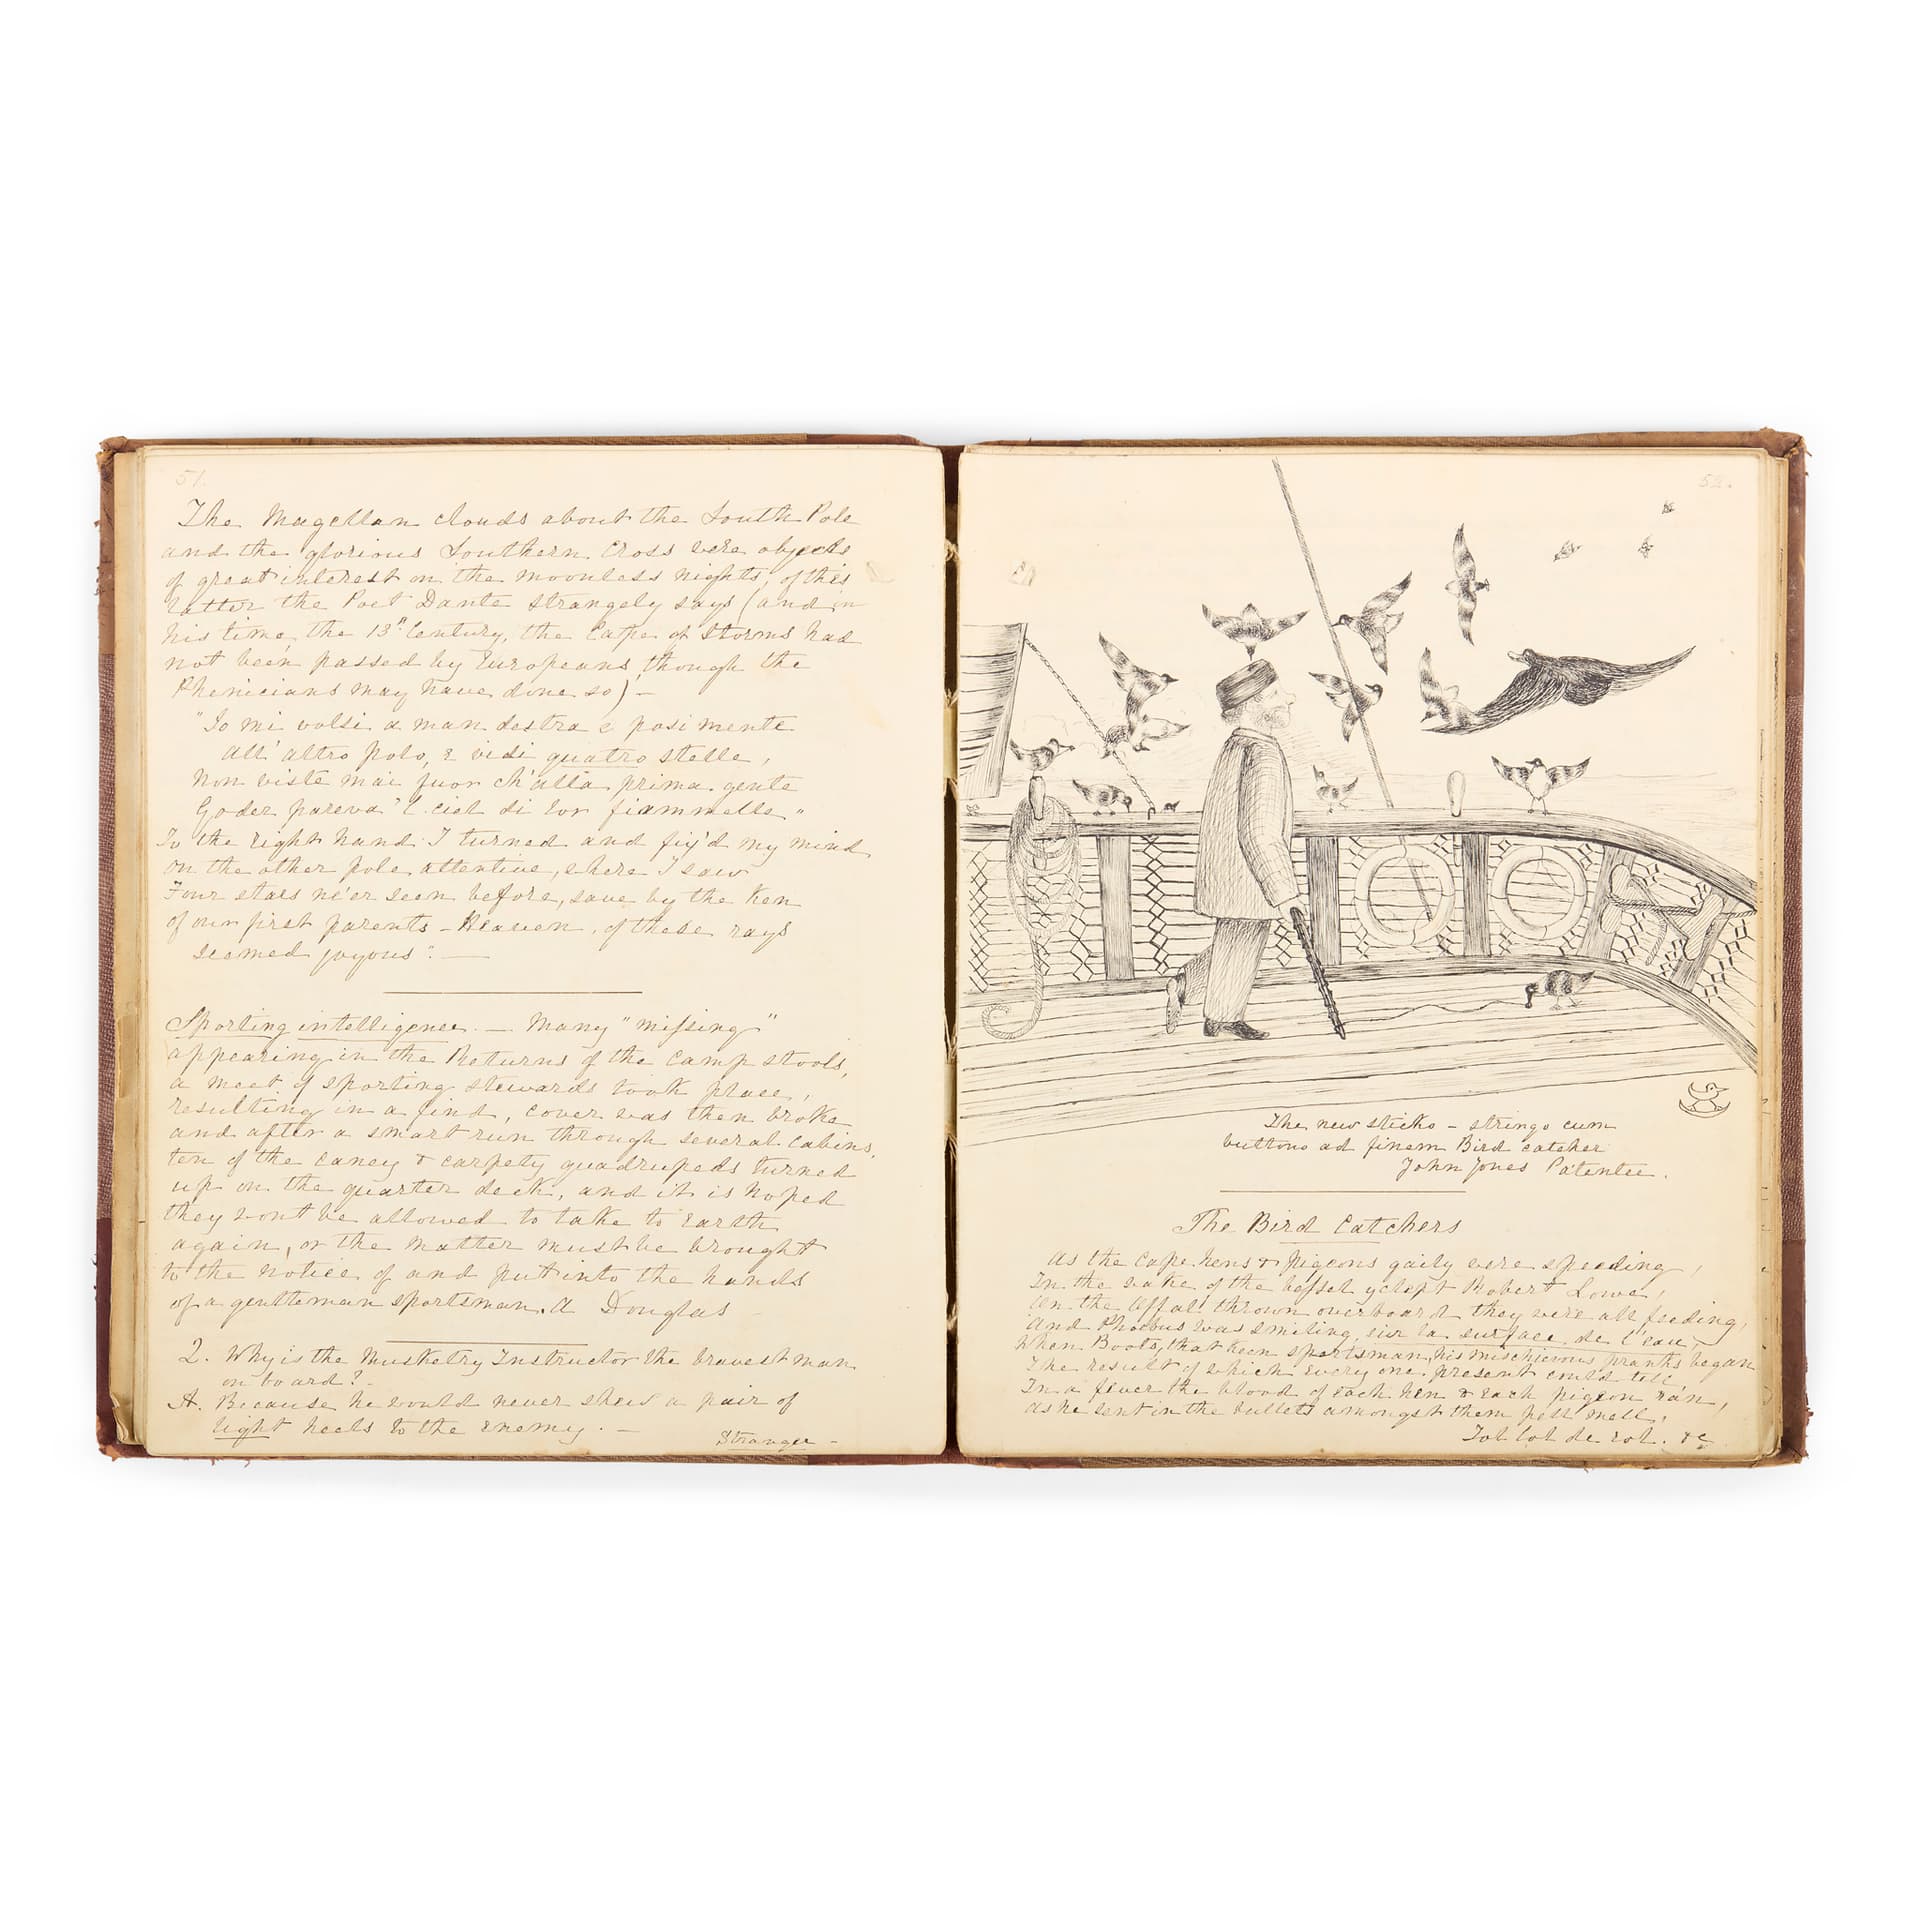 51.
The Magellan clouds about the South Pole
and the glorious Southern Cross were objects
of great interest on the moonless nights, of this
latter the Poet Dante strangely says (and in
his time, the 13th Century, the Cape of Storms had
not been passed by Europeans, though the
Phenicians may have done so) —
"Io mi volsi a man destra e posi mente
All' altro polo, e vidi quatro stelle,
Non viste mai fuor ch'alla prima gente
Goder pareva 'l ciel di lor fiammelle"
To the right hand I turned and fix'd my mind
On the other pole attentive, where I saw
Four stars ne'er seen before, save by the ken
of our first parents — Heaven, of these rays
seemed joyous". —
Sporting intelligence. — Many "missing"
appearing in the Returns of the camp stools,
a meet of sporting stewards took place,
resulting in a find, cover was then broke
and after a smart run through several cabins,
ten of the caney & carpety quadrupeds turned
up on the quarter deck, and it is hoped
they wont be allowed to take to Earth
again, or the matter must be brought
to the notice of and put into the hands
of a gentleman sportsman. A Douglas —
Q. Why is the Musketry Instructor the bravest man
on board? —
A. Because he would never shew a pair of
light heels to the Enemy. —
Stranger —
52.
The new sticks — strings cum
buttons ad finem Bird catcher
John Jones Patentee.
The Bird Catchers
As the Cape hens & pigeons gaily were speeding,
In the wake of the vessel yclept Robert Lowe,
On the offal thrown overboard they were all feeding,
And Phoebus was smiling, sur la surface de l'eau,
When Boots, that keen sportsman, his mischievous pranks began
The result of which every one present could tell
In a fever the blood of each hen & each pigeon ran,
As he sent in the bullets amongst them pell mell,
Tol lol de rol. &c